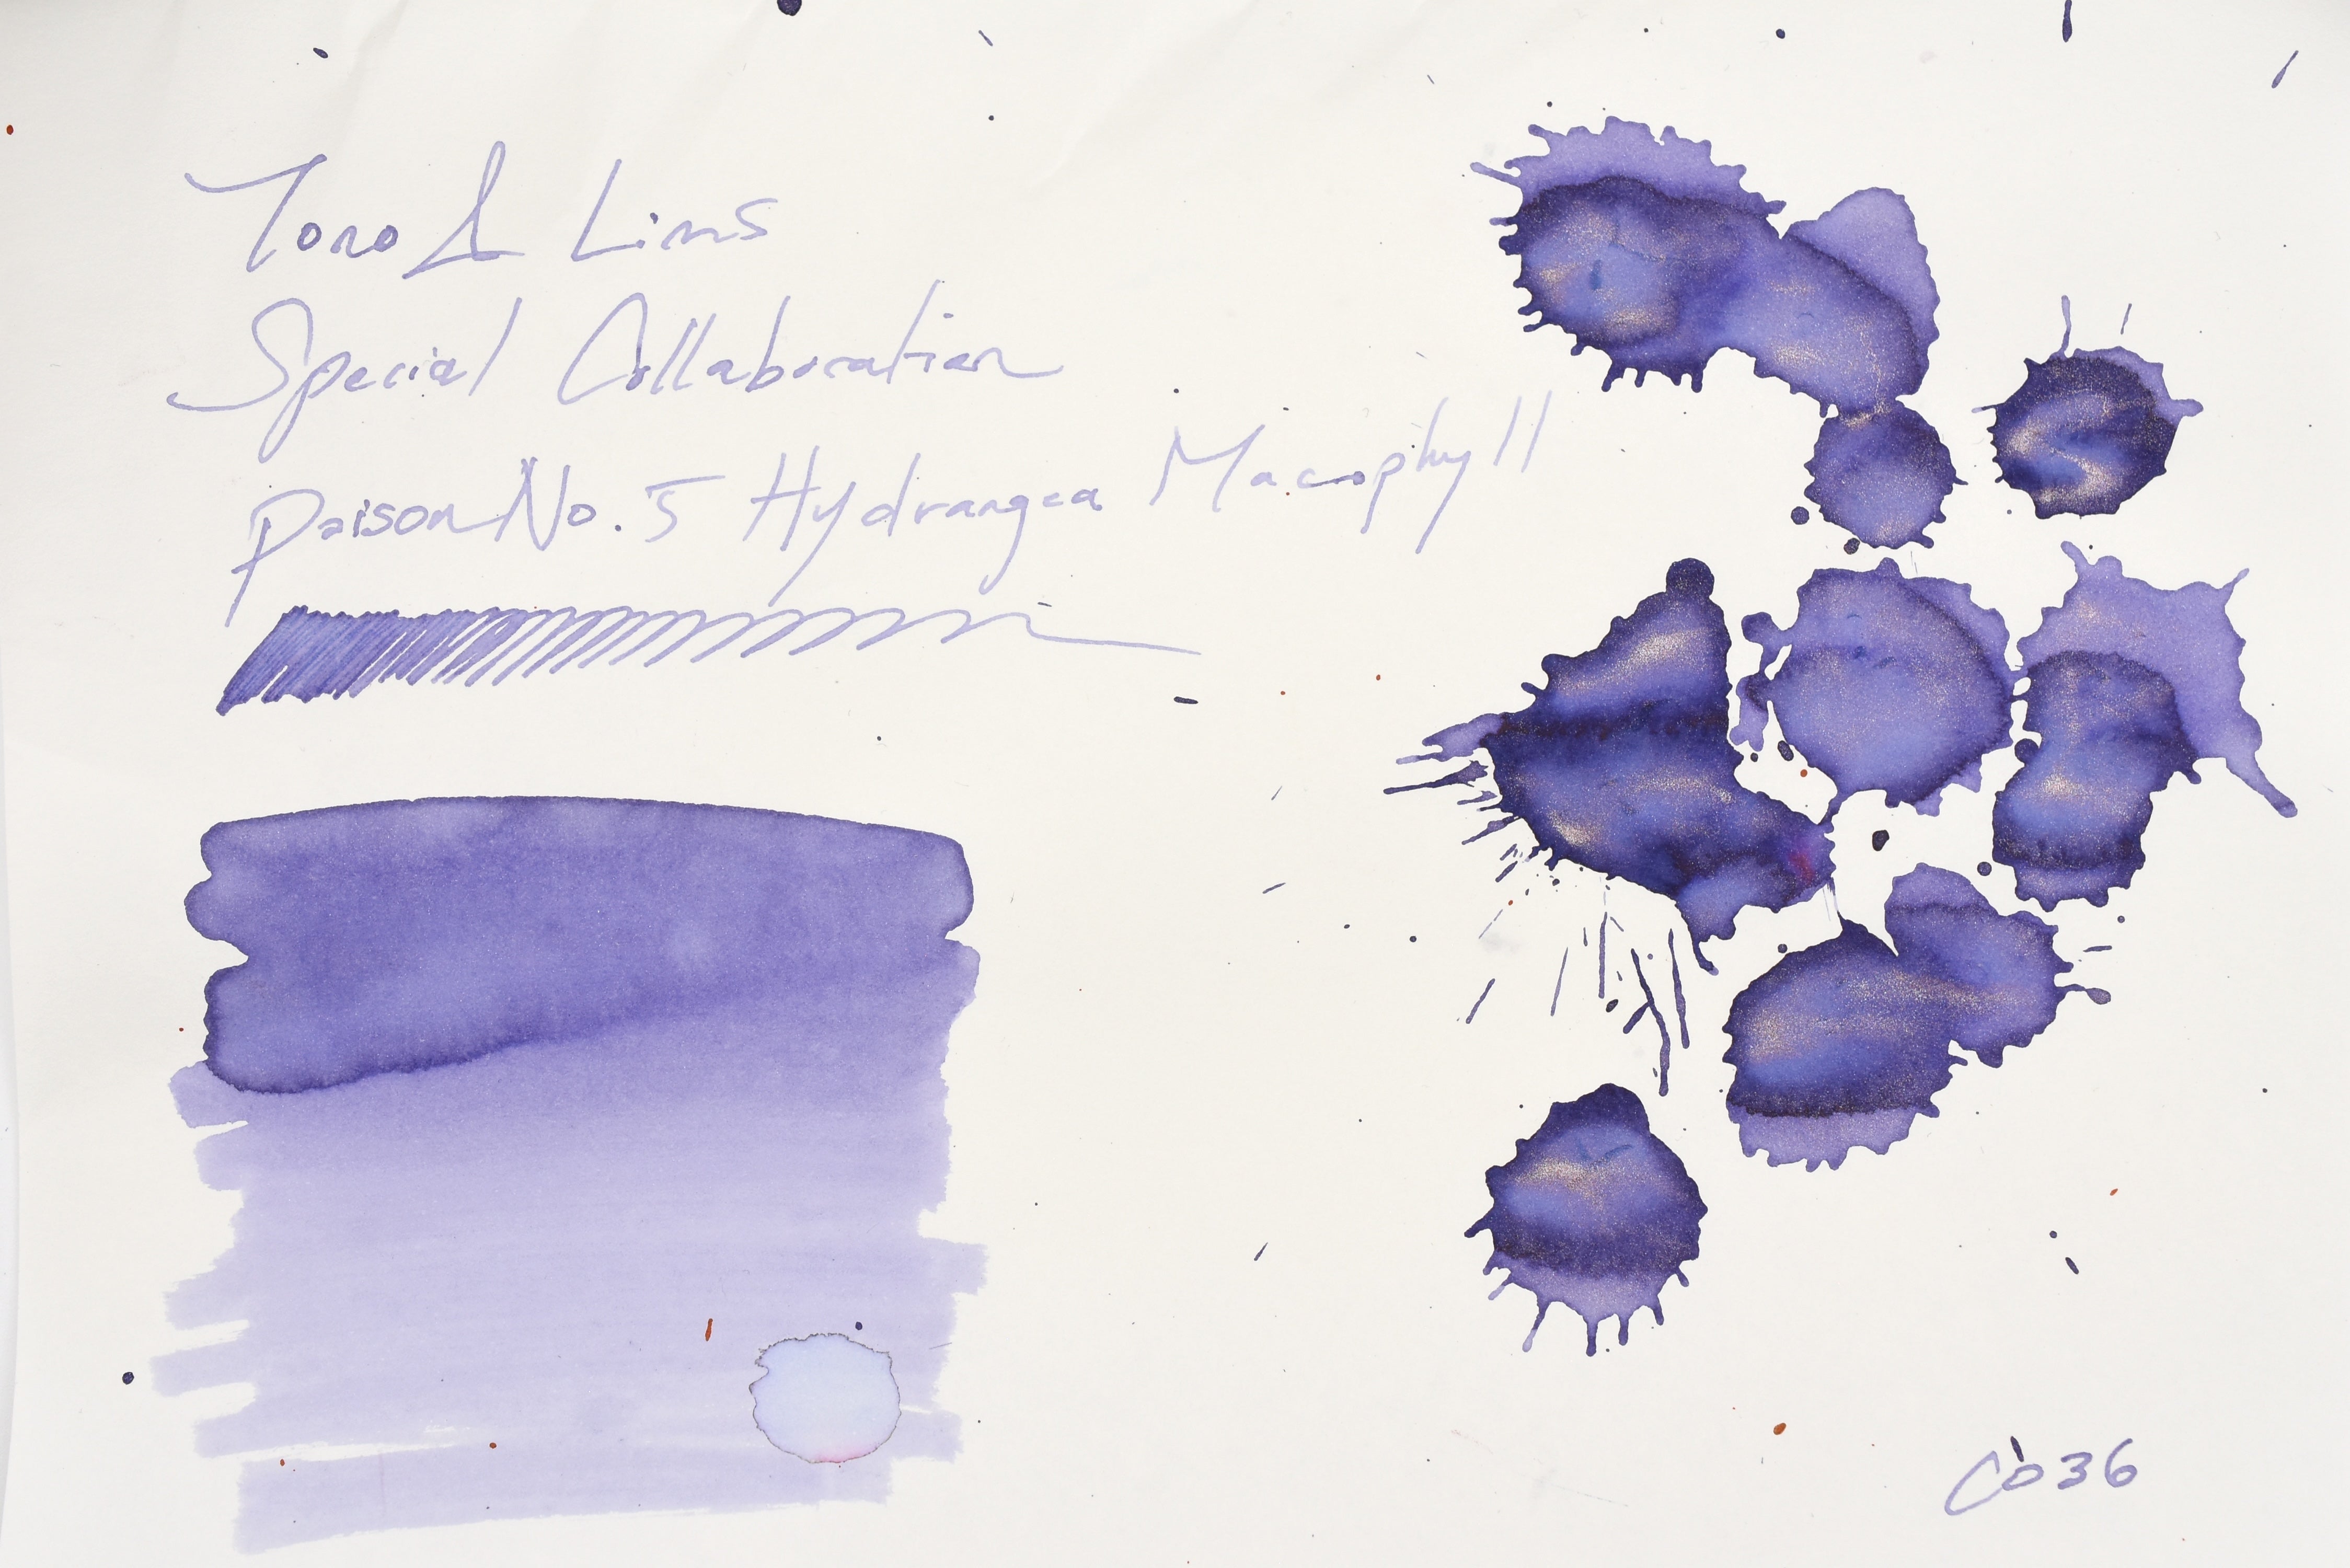 Tono & Lims
Special Collaboration
Poison No. 5 Hydrangea Macophyll
C036